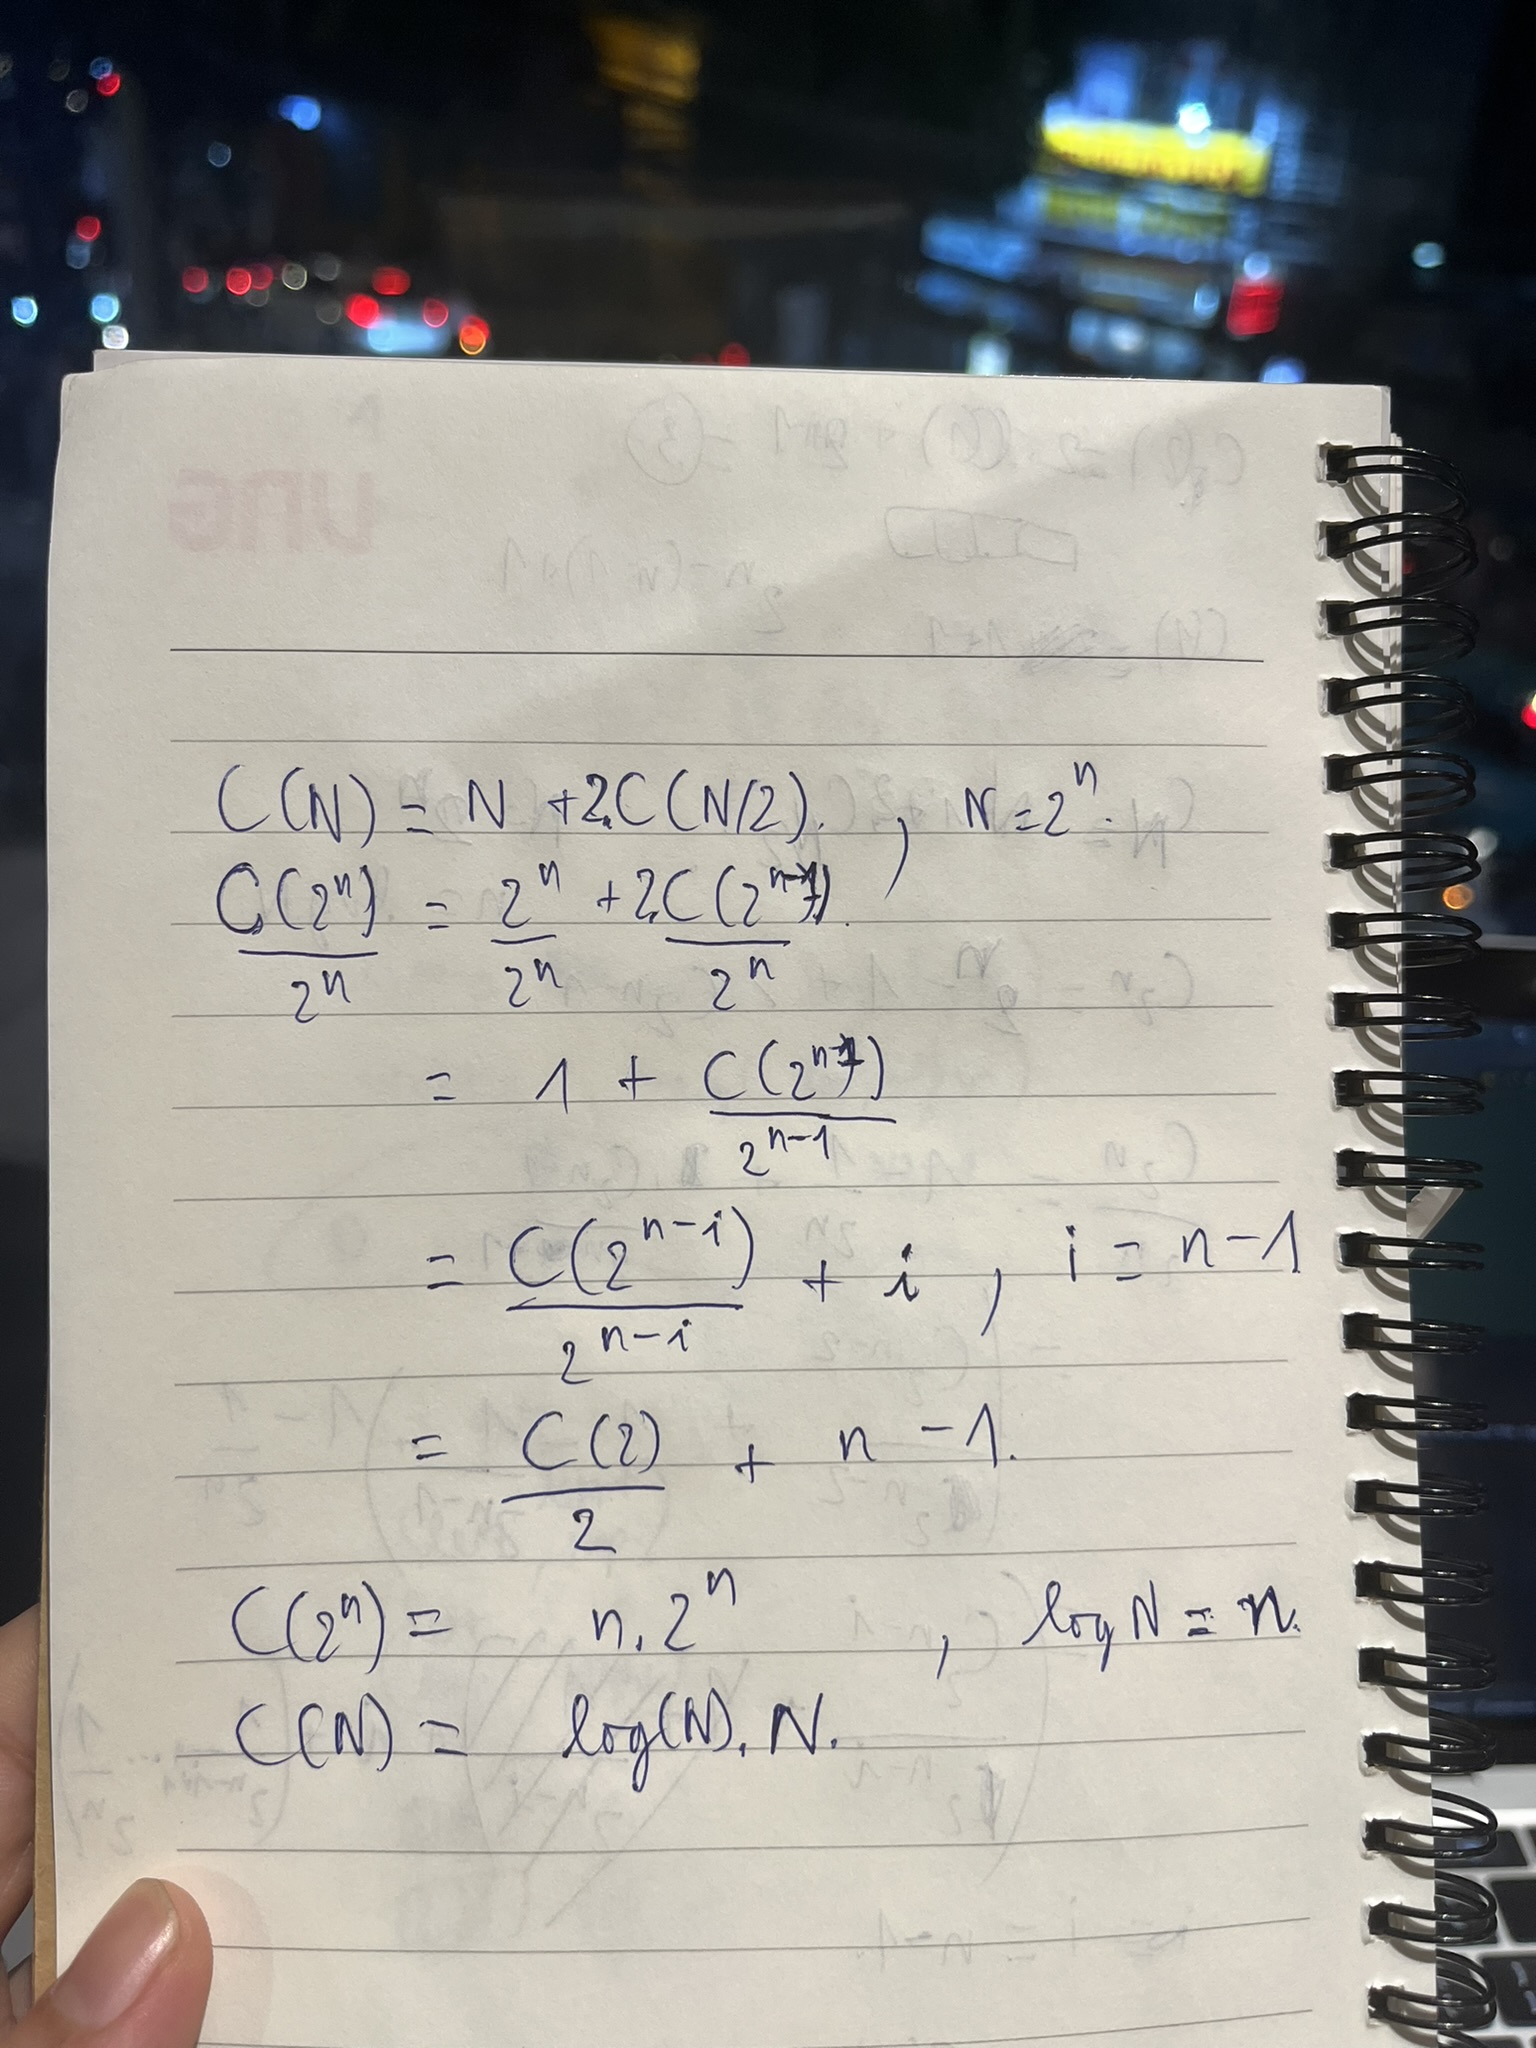 C(N) = N + 2.C(N/2). , N = 2^n.
C(2^n)/2^n = 2^n/2^n + 2.C(2^(n-1))/2^n.
= 1 + C(2^(n-1))/2^(n-1)
= C(2^(n-i))/2^(n-i) + i , i = n-1
= C(2)/2 + n - 1.
C(2^n) = n.2^n , log N = n.
C(N) = log(N). N.